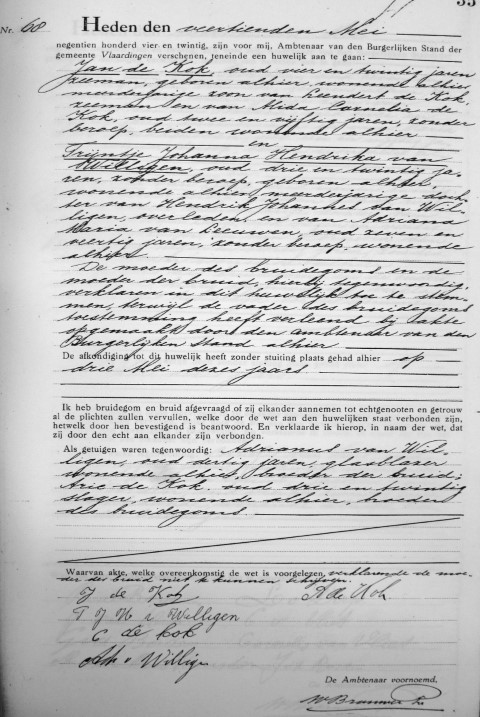 33
Nr. 68 Heden den veertienden Mei
negentien honderd vier en twintig, zijn voor mij, Ambtenaar van den Burgerlijken Stand der
gemeente Vlaardingen verschenen, teneinde een huwelijk aan te gaan:
Jan de Kok, oud vier en twintig jaren
zeeman, geboren alhier, wonende alhier,
meerderjarige zoon van Leendert de Kok,
zeeman en van Alida Cornelia de
Kok, oud twee en vijftig jaren, zonder
beroep, beiden wonende alhier
en
Trijntje Johanna Hendrika van
Willigen, oud drie en twintig ja-
ren, zonder beroep, geboren alhier,
wonende alhier, meerderjarige doch-
ter van Hendrik Johannes van Wil-
ligen, overleden en van Adriana
Maria van Leeuwen, oud zeven en
veertig jaren, zonder beroep, wonende
alhier
De moeder des bruidegoms en de
moeder der bruid, hierbij tegenwoordig,
verklaren in dit huwelijk toe te stem-
men, terwijl de vader des bruidegoms
toestemming heeft verleend bij akte
opgemaakt door den ambtenaar van den
Burgerlijken Stand alhier
De afkondiging tot dit huwelijk heeft zonder stuiting plaats gehad alhier op
drie Mei dezes jaars
Ik heb bruidegom en bruid afgevraagd of zij elkander aannemen tot echtgenooten en getrouw
al de plichten zullen vervullen, welke door de wet aan den huwelijken staat verbonden zijn,
hetwelk door hen bevestigend is beantwoord. En verklaarde ik hierop, in naam der wet, dat
zij door den echt aan elkander zijn verbonden.
Als getuigen waren tegenwoordig: Adrianus van Wil-
ligen, oud dertig jaren, glasblazer
wonende alhier, broeder der bruid;
Arie de Kok, oud drie en twintig
slager, wonende alhier, broeder
des bruidegoms
Waarvan akte, welke overeenkomstig de wet is voorgelezen, verklarende de moe-
der der bruid niet te kunnen schrijven.
J de Kok A de Kok
T J H v Willigen
C de Kok
v Willigen
De Ambtenaar voornoemd.